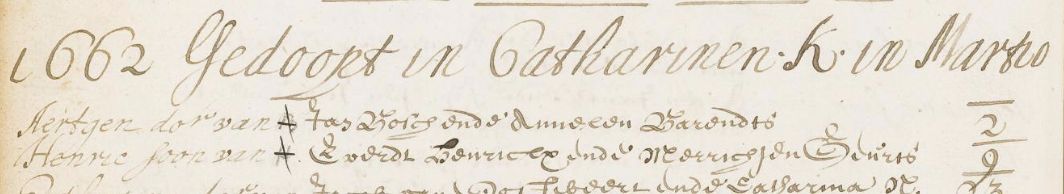 1662 Gedoopt in Catharinen. K. in Martio
Aertgen dor van Jan Bosch ende Anneken Barendts 2
Henric soon van Everdt Henricx ende Merrichjen Geurts 9
ende Catharina